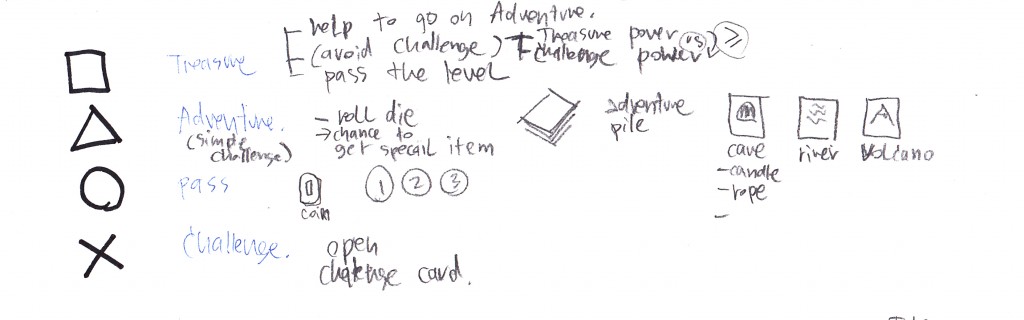 help to go on Adventure.
Treasure
(avoid challenge)
Treasure power
vs
≥
challenge power
pass the level
Adventure.
(simple challenge)
- roll die
→ chance to
get specail item
adventure
pile
cave
- candle
- rope
-
river
Volcano
pass
coin
1 2 3
Challenge.
open
challenge card.